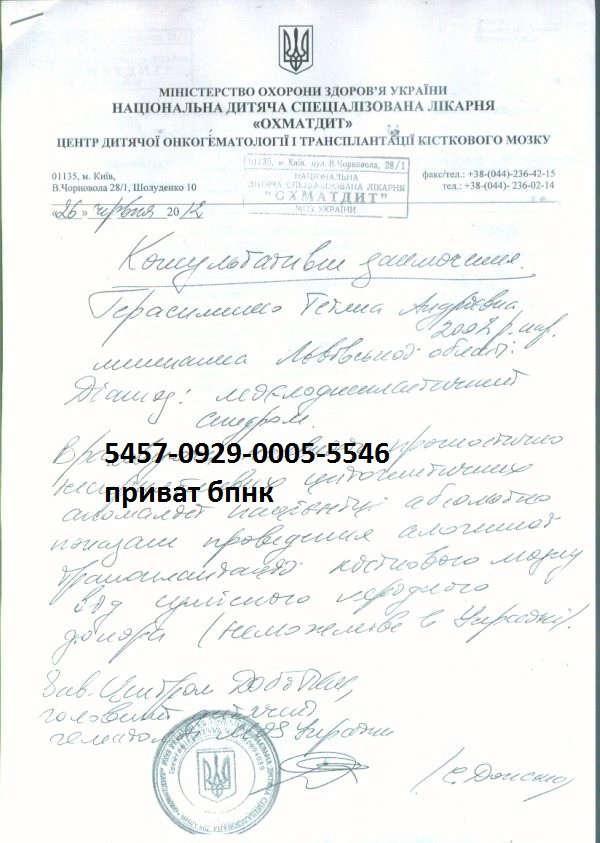 МІНІСТЕРСТВО ОХОРОНИ ЗДОРОВ'Я УКРАЇНИ
НАЦІОНАЛЬНА ДИТЯЧА СПЕЦІАЛІЗОВАНА ЛІКАРНЯ
«ОХМАТДИТ»
ЦЕНТР ДИТЯЧОЇ ОНКОГЕМАТОЛОГІЇ І ТРАНСПЛАНТАЦІЇ КІСТКОВОГО МОЗКУ
01135, м. Київ,
В.Чорновола 28/1, Шолуденко 10
01135, м. Київ, вул. В.Чорновола, 28/1
НАЦІОНАЛЬНА
ДИТЯЧА СПЕЦІАЛІЗОВАНА ЛІКАРНЯ
"ОХМАТДИТ"
МОЗ УКРАЇНИ
факс/тел.: +38-(044)-236-42-15
тел.: +38-(044)- 236-02-14
«26» червня 2012
Консультативне заключення.
Андріївна
2002 р. нар.
мешканка Львівської області.
Діагноз: мієлодиспластичний
синдром.
5457-0929-0005-5546
приват бпнк
прогностично
цитогенетичних
аномалій пацієнтці абсолютно
показане проведення алогенної
трансплантації кісткового мозку
від сумісного народного
донора (неможливе в Україні).
Зав. Центром
головний дитячий
гематолог МОЗ України